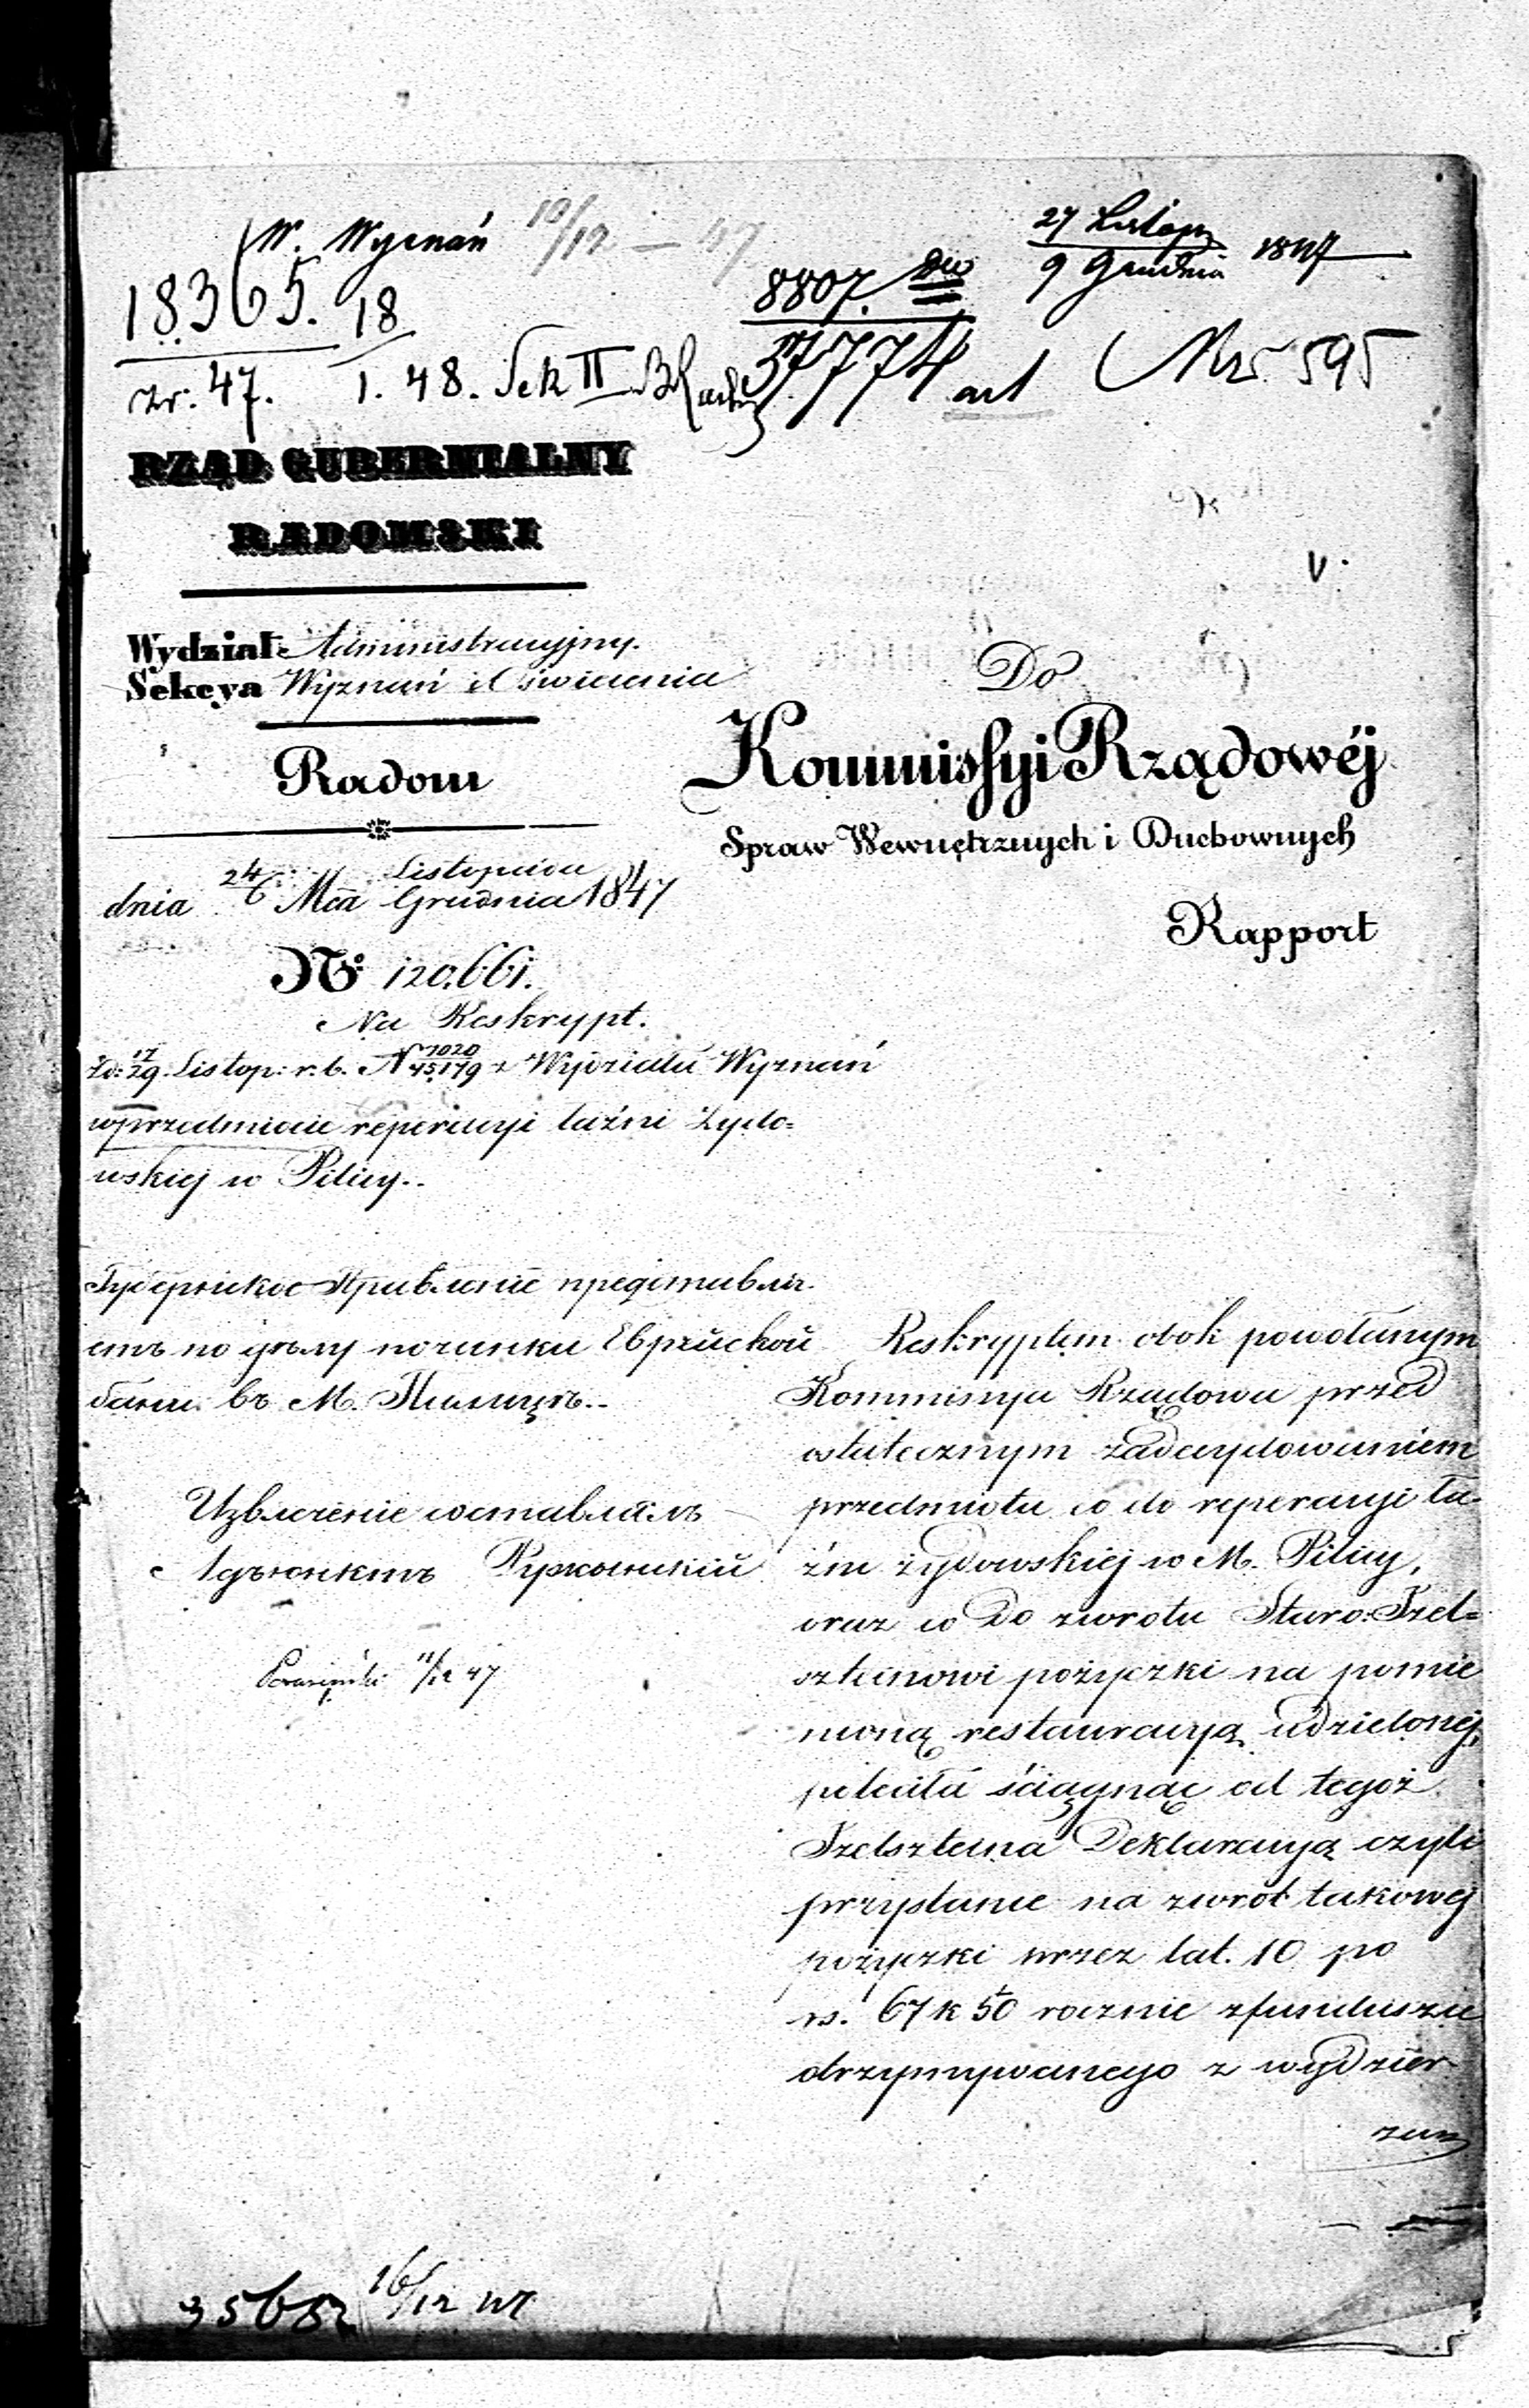 W. Wyznań 10/12 — 47
27 Listop
9 Grudnia 1847
18365. 18
8807.
37774
Nro 595
zr. 47. 1. 48. Sek II
RZĄD GUBERNIALNY
RADOMSKI
Wydział Administracyjny.
Sekcya Wyznań i Oświecenia
Radom
dnia 24/6 Mca Listopada/Grudnia 1847
No 120.661.
Na Reskrypt.
zd: 17/29. Listop: r. b. N 7020/45179 z Wydziału Wyznań
w przedmiocie reperacyi łaźni Żydo=
wskiej w Pilicy.
Губернское Правление представля-
етъ по делу починки Еврейской
бани въ М. Пилицѣ.
Извлечение составлялъ
Адъюнктъ
11/12 47
Do
Kommissyi Rządowéj
Spraw Wewnętrznych i Duchownych
Rapport
Reskryptem obok powołanym
Kommissya Rządowa przed
ostatecznym zadecydowaniem
przedmiotu co do reperacyi ła-
źni żydowskiej w M. Pilicy,
oraz co do zwrotu Staro: Fzel=
szteinowi pożyczki na pomie
nioną restauracyą udzielonéj,
poleciła ściągnąć od tegoż
Fzelszteina Deklaracyą czyli
przystanie na zwrot takowej
pożyczki przez lat. 10 po
rs. 67 k 50 rocznie z funduszu
otrzymywanego z wydzier
żaw
35682 16/12 47